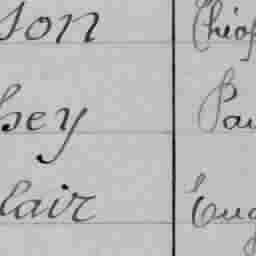 son Chéof
hey Pau
lair Eug